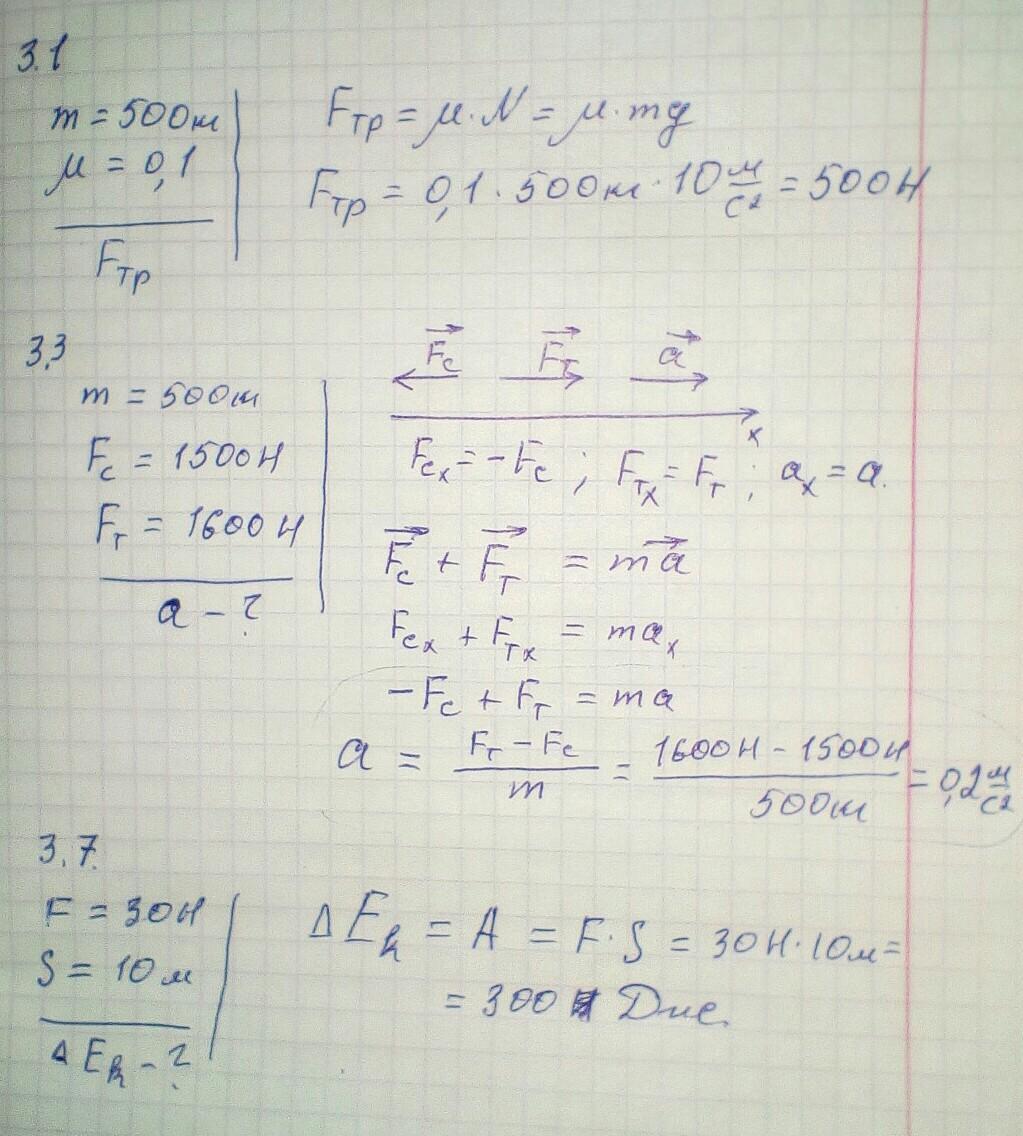 3.1
m = 500кг
μ = 0,1
Fтр
Fтр = μ·N = μ·mg
Fтр = 0,1·500кг·10 м/с² = 500Н
3.3
m = 500кг
Fс = 1500Н
Fт = 1600Н
a - ?
Fс Fт a
x
Fсx = -Fс ; Fтx = Fт ; ax = a.
Fс + Fт = ma
Fсx + Fтx = max
-Fс + Fт = ma
a = (Fт - Fс)/m = (1600Н - 1500Н)/500кг = 0,2 м/с²
3.7.
F = 30Н
S = 10м
ΔEк - ?
ΔEк = A = F·S = 30Н·10м =
= 300 Дж.